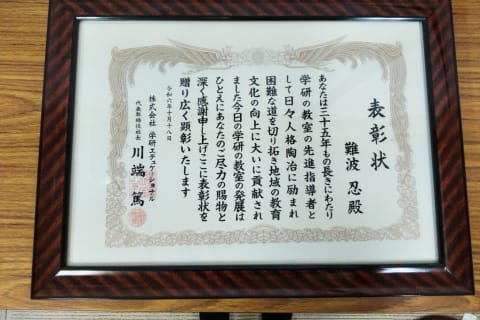 表彰状
難波 忍 殿
あなたは三十五年もの長きにわたり
学研の教室の先進指導者と
して日々人格陶冶に励まれ
困難な道を切り拓き地域の教育
文化の向上に大いに貢献され
ました今日の学研の教室の発展は
ひとえにあなたのご尽力の賜物と
深く感謝申し上げここに表彰状を
贈り広く顕彰いたします
令和六年十月十八日
株式会社 学研エデュケーショナル
代表取締役社長 川端 篤